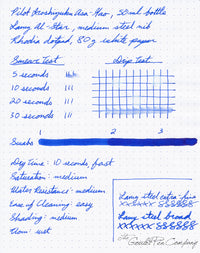 Pilot Iroshizuku Asa-Gao, 50ml bottle
Lamy Al-Star, medium steel nib
Rhodia dotpad, 80g white paper
Smear Test
Drip Test
5 seconds
10 seconds
20 seconds
30 seconds
1 2 3
Swabs
Dry Time: 10 seconds, fast
Saturation: medium
Water Resistance: medium
Ease of Cleaning: easy
Shading: medium
Flow: wet
Lamy steel extra-fine
xxxxxx 888888
Lamy steel broad
xxxxxx 888888
The Goulet Pen Company